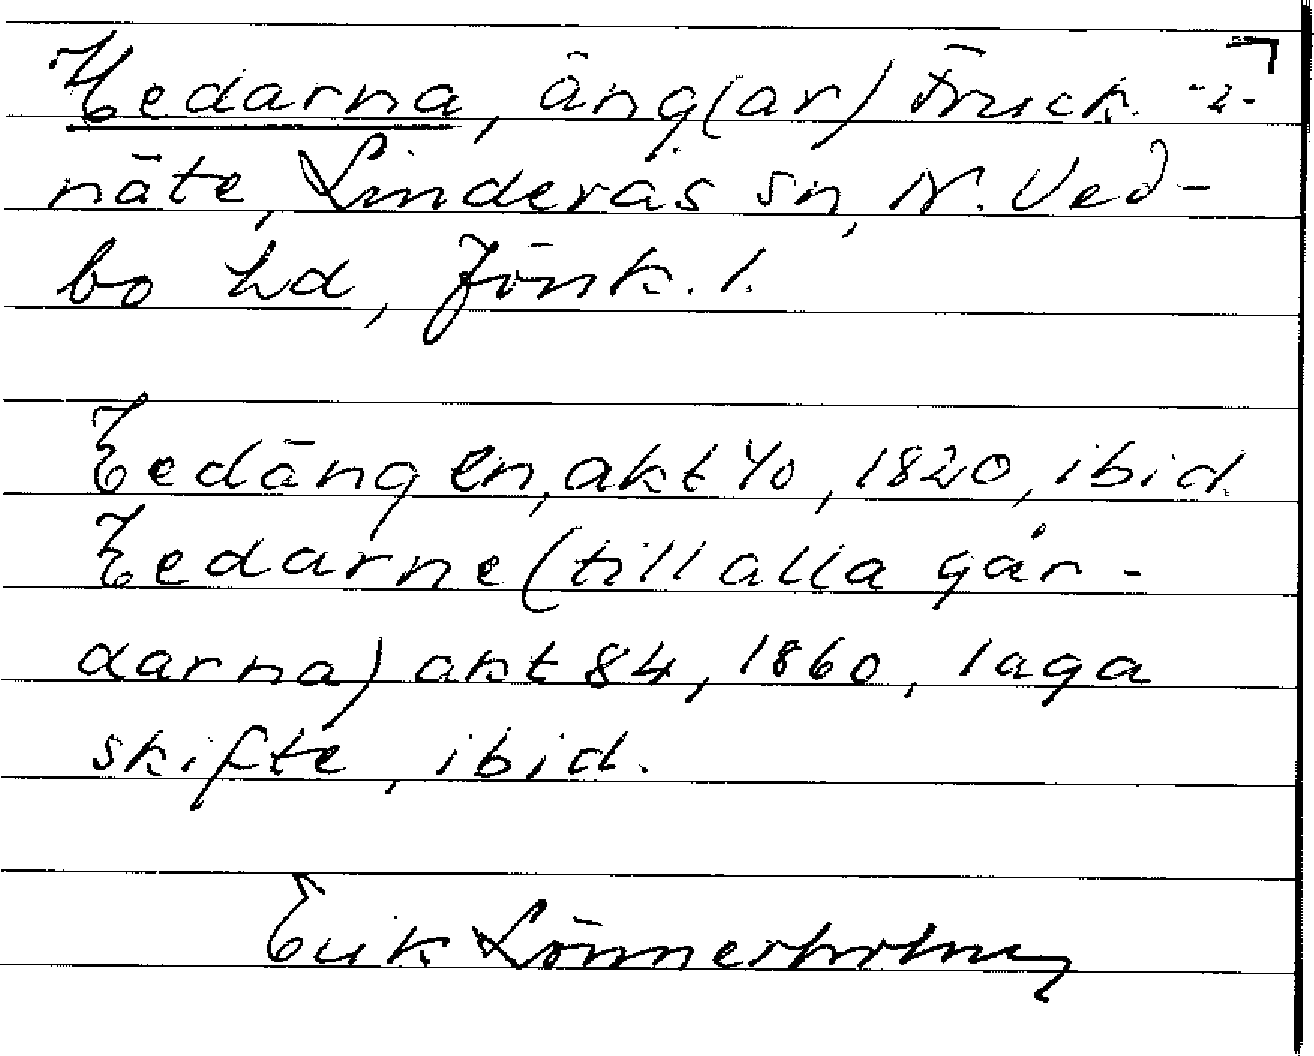 Hedarna, äng(ar) Fruck. -2-
näte, Linderås sn, N. Ved-
bo hd, Jönk. l.
Eedängen, akt 40, 1820, ibid.
Eedarne (till alla går-
darna) akt 84, 1860, laga
skifte, ibid.
Erik Lönnerholm